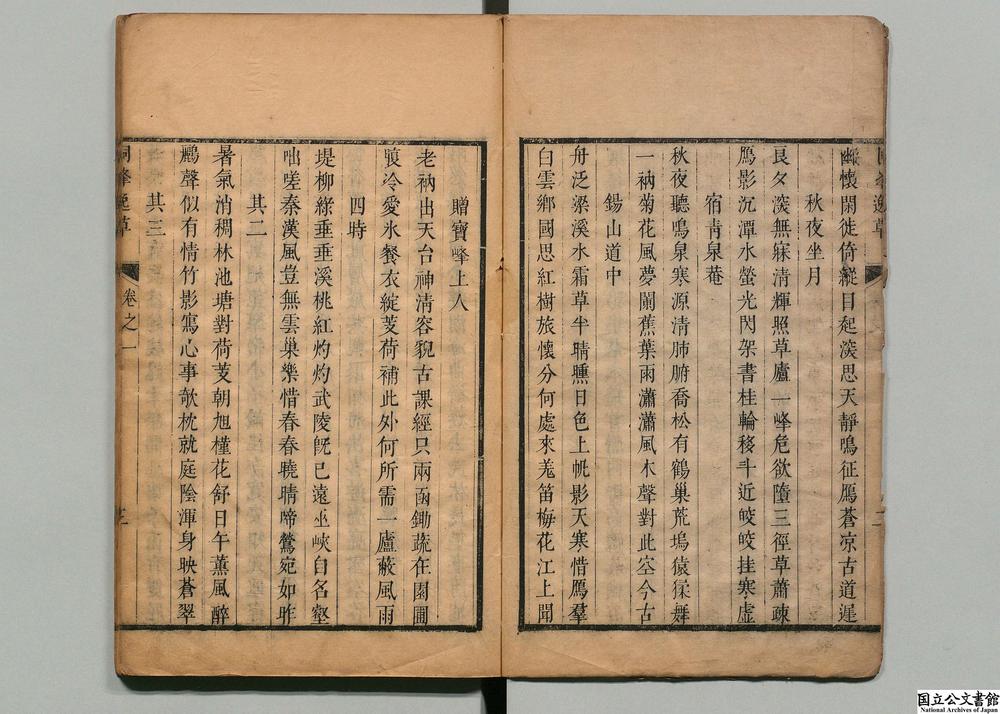 幽懷閑徙倚縱目起淡思天靜鳴征鴈蒼凉古道遲
秋夜坐月
良夕淡無寐清輝照草廬一峰危欲墮三徑草蕭疎
鴈影沉潭水螢光閃架書桂輪移斗近皎皎挂寒虛
宿青泉菴
秋夜聽鳴泉寒源清肺腑喬松有鶴巢荒塢猿猱舞
一衲菊花風夢闌蕉葉雨瀟瀟風木聲對此空今古
錫山道中
舟泛梁溪水霜草半晴曛日色上帆影天寒惜鴈羣
白雲鄉國思紅樹旅懷分何處來羗笛梅花江上聞
贈寶峰上人
老衲出天台神清容貌古課經只兩函鋤蔬在園圃
裛冷愛氷餐衣綻芰荷補此外何所需一廬蔽風雨
四時
堤柳綠垂垂溪桃紅灼灼武陵旣已遠巫峽自名壑
咄嗟秦漢風豈無雲巢樂惜春春曉晴啼鶯宛如昨
其二
暑氣消稠林池塘對荷芰朝旭槿花舒日午薰風醉
鸝聲似有情竹影寫心事欹枕就庭陰渾身映蒼翠
其三
峰逸草
卷之一
国立公文書館
National Archives of Japan